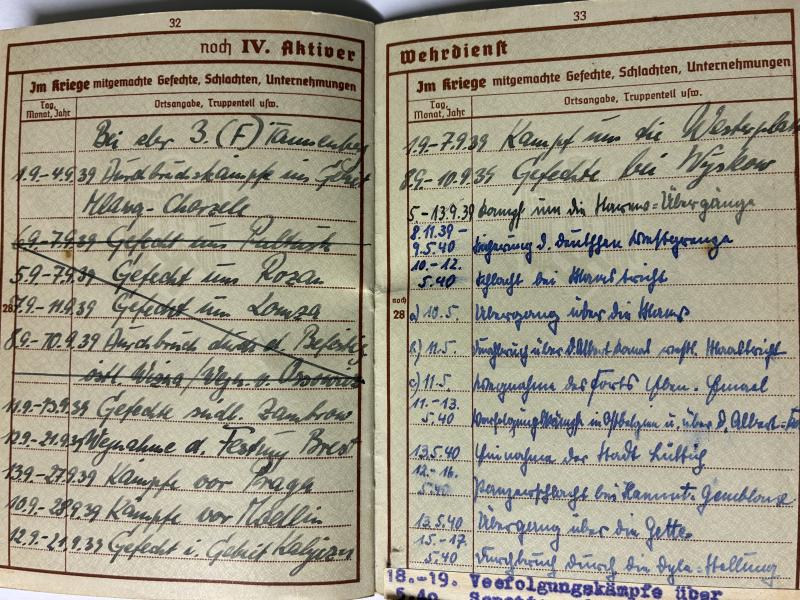 32
noch IV. Aktiver
Im Kriege mitgemachte Gefechte, Schlachten, Unternehmungen
Tag, Monat, Jahr
Ortsangabe, Truppenteil usw.
Bei der 3. (F) Tannenberg
1.9.-4.9.39 Durchbruchskämpfe im Gebiet
Mlawa-Chorzele
6.9.-7.9.39 Gefecht um Pultusk
5.9.-7.9.39 Gefecht um Rozan
28
7.9.-11.9.39 Gefecht um Lomza
8.9.-10.9.39 Durchbruch durch d. Befestig
östl. Wizna
11.9.-13.9.39 Gefechte südl. Zambrow
12.9.-21.9.39 Wegnahme d. Festung Brest
13.9.-27.9.39 Kämpfe vor Praga
10.9.-28.9.39 Kämpfe vor Modlin
12.9.-21.9.39 Gefecht i. Gebiet
33
Wehrdienst
Im Kriege mitgemachte Gefechte, Schlachten, Unternehmungen
Tag, Monat, Jahr
Ortsangabe, Truppenteil usw.
1.9.-7.9.39 Kampf um die Westerplatte
8.9.-10.9.39 Gefechte bei Wyskow
5.-13.9.39 Kampf um die Narew-Übergänge
8.11.39 -
9.5.40 Sicherung d. deutschen Westgrenze
10.-12.
5.40 Schlacht bei Maastricht
noch
28
a) 10.5. Übergang über die Maas
b) 11.5. Durchbruch über d. Albert Kanal westl. Maastricht
c) 11.5. Wegnahme des Forts Eben-Emael
11.-13.
5.40 Verfolgungskämpfe in Ostbelgien u. über d. Albert-
13.5.40 Einnahme der Stadt Lüttich
12.-16.
5.40 Panzerschlacht bei Hannut-Gembloux
13.5.40 Übergang über die Gette
15.-17.
5.40 Durchbruch durch die Dyle-Stellung
18.-19. Veefolgungskämpfe über
5.40